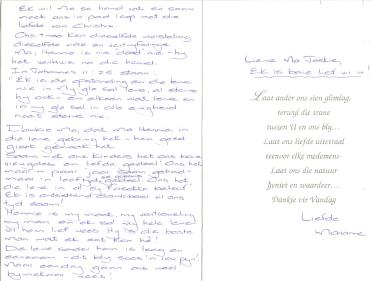 Ek wil Ma se hand vat en saam
met ons in pad loop met die
liefde van Christus.
Ons twee ken dieselfde
dieselfde
Ma, Hennie is nie dood nie - hy
het verhuis na die hemel.
In Johannes 11:25 staan:
"Ek is die opstanding en die lewe
wie in My glo sal lewe, al sterwe
hy ook - en elkeen wat lewe en
in my glo sal in alle ewigheid
nooit sterwe nie.
Dankie Ma, dat Ma Hennie in
die lewe gebring het - hom goed
groot gemaak het.
Saam met ons kinders het ons baie
vreugde en liefde gedeel. Ons het
maar - paar jaar saam gehad -
maar 'n leeftyd
die lewe in al sy beleef!
Ek is dankbaar vir ons
tyd saam!
Hennie is my maat, my
my man en ek sal vir hom
lief hê. Hy is die beste
man wat ek kon hê!
Die lewe sonder hom is leeg en
eensaam - dit bly soos 'n
Maar eendag gaan ons weer
bymekaar wees!
Liewe Ma Jackie,
Ek is baie lief vir u!
Laat ander ons sien glimlag,
terwyl die trane
tussen U en ons bly...
Laat ons liefde uitstraal
teenoor elke medemens-
Laat ons die natuur
geniet en waardeer...
Dankie vir Vandag
Liefde